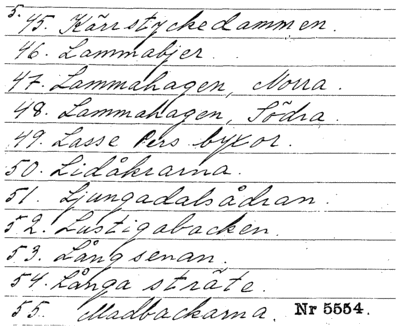 5.
45. Kärrstyckedammen.
46. Lammabjer.
47. Lammahagen, Norra.
48. Lammahagen, Södra.
49. Lasse Pers byxor.
50. Lidåkrarna.
51. Ljungadalsådran.
52. Lustigabacken.
53. Långsenan.
54. Långa sträte.
55. Madbackarna. Nr 5554.